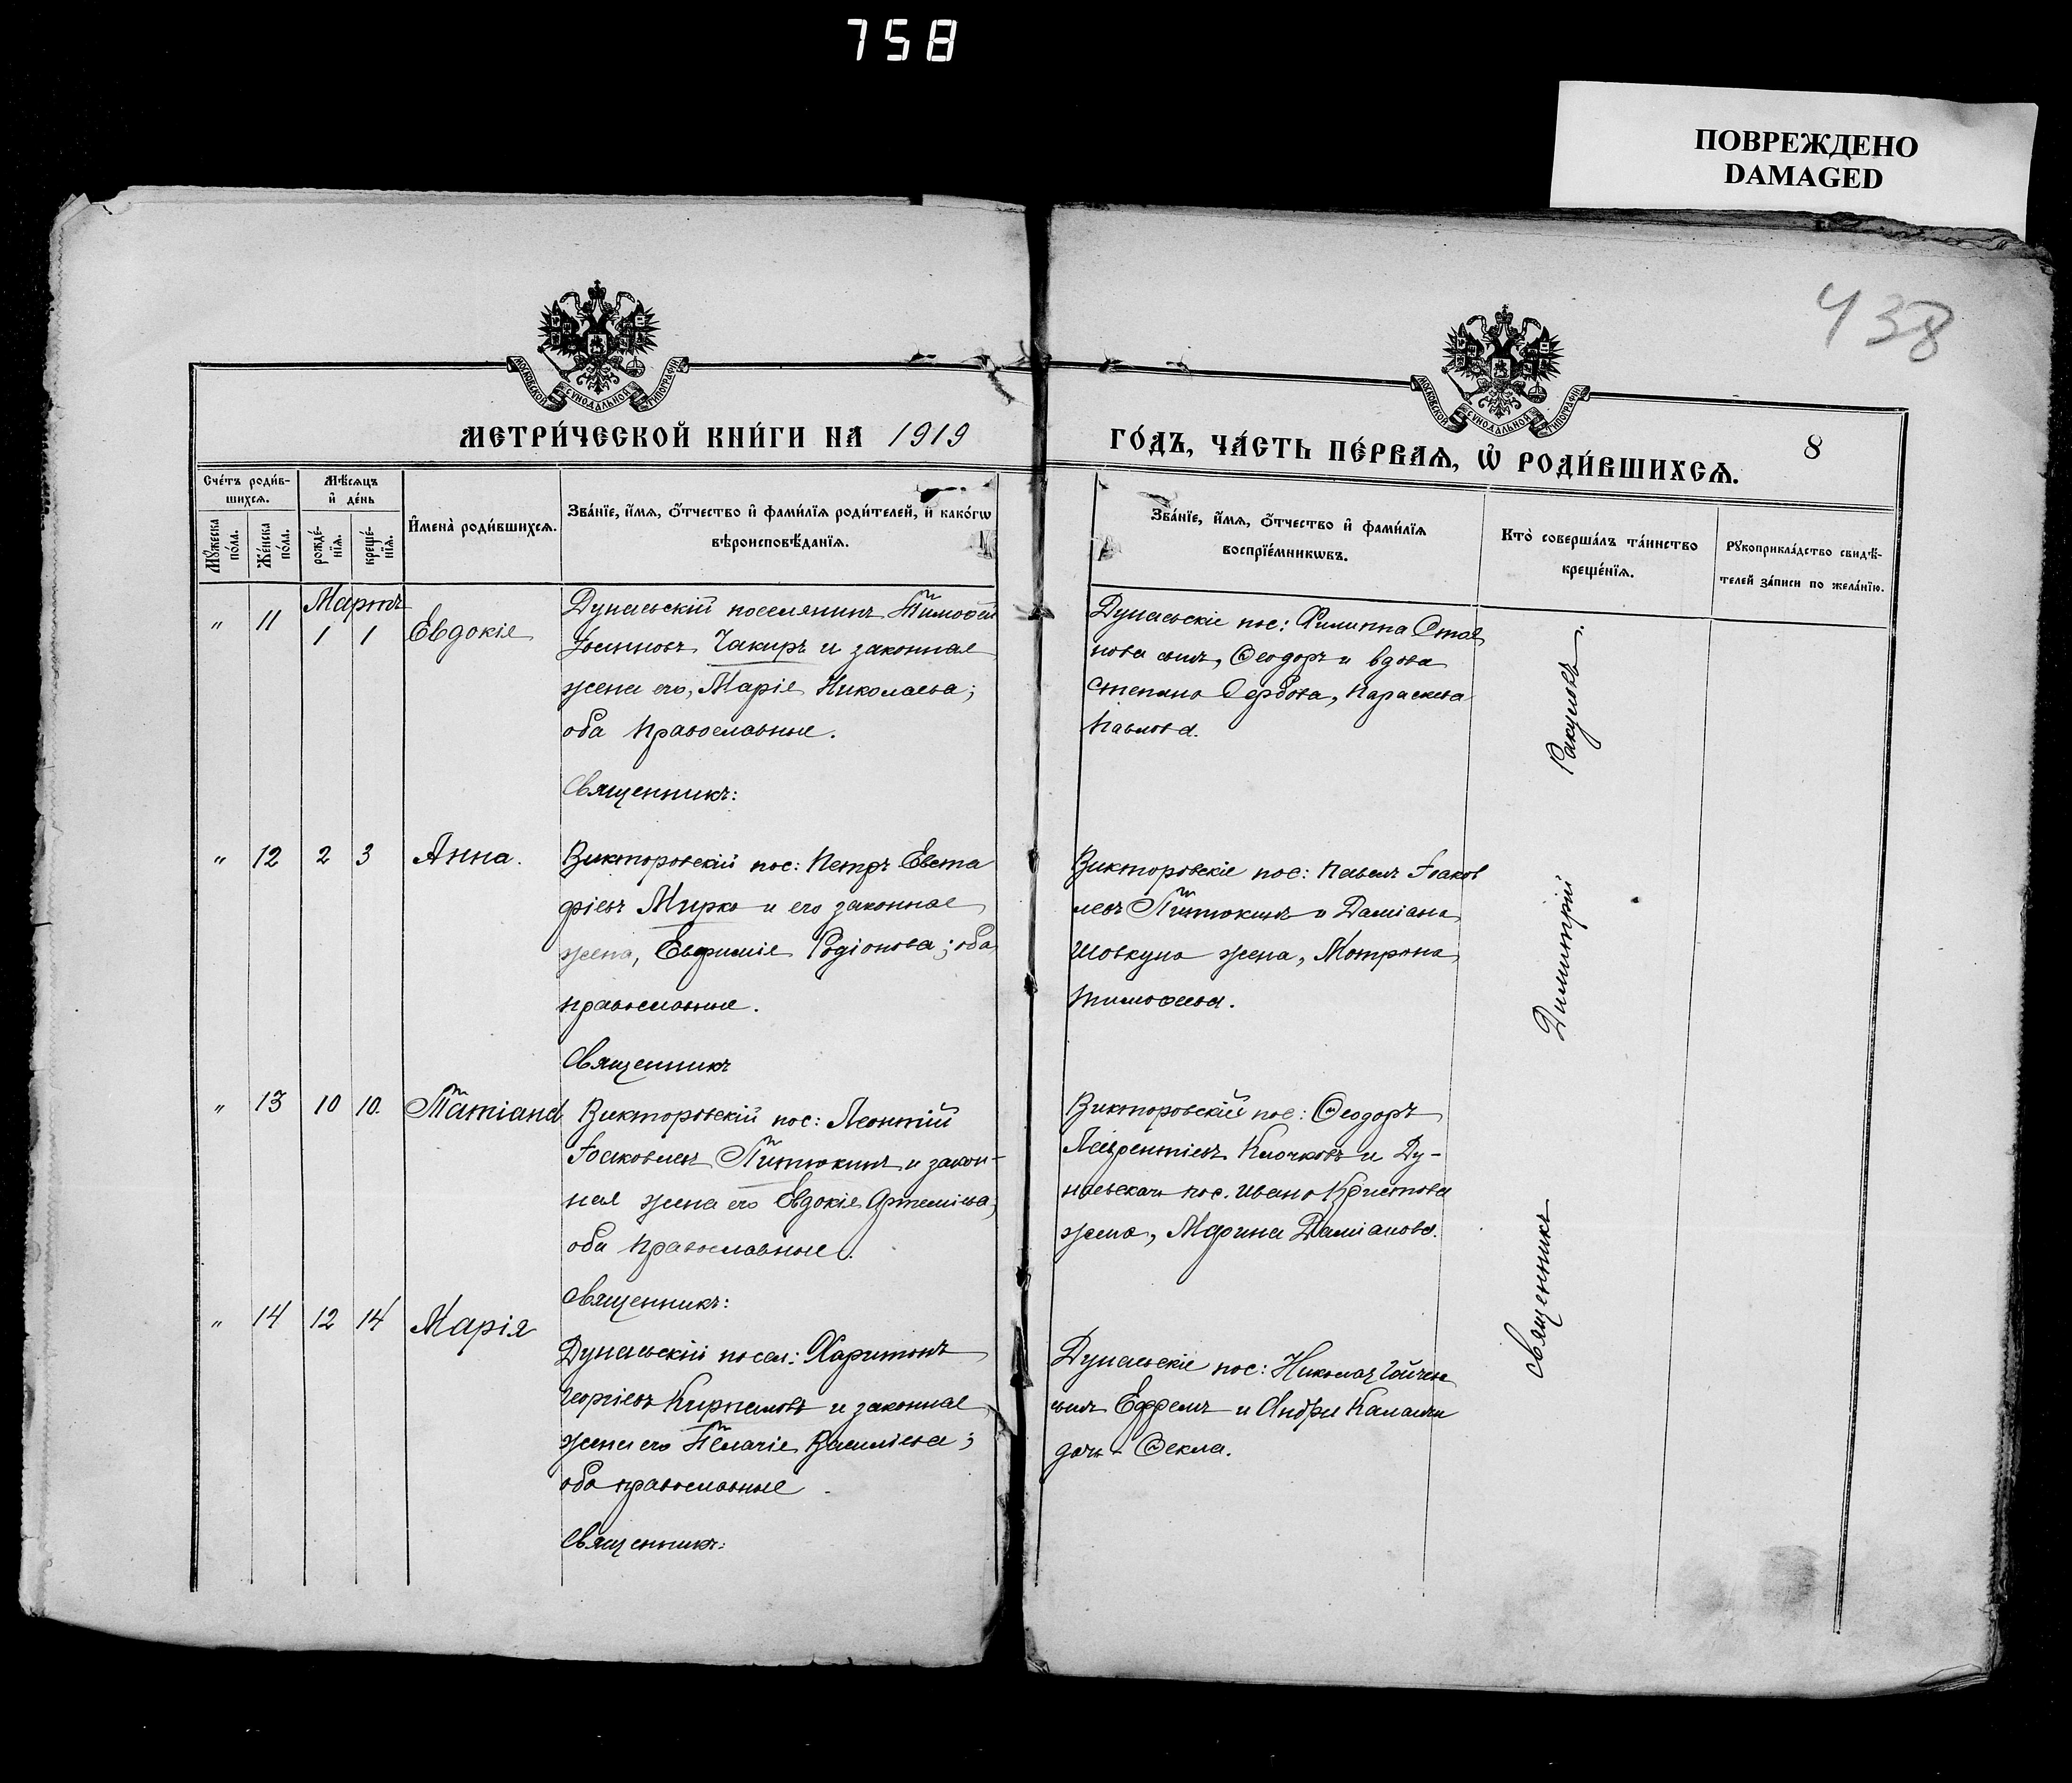 758
ПОВРЕЖДЕНО
DAMAGED
438
МОСКОВСКОЙ СУНОДАЛЬНОЙ ТИПОГРАФІИ
МОСКОВСКОЙ СУНОДАЛЬНОЙ ТИПОГРАФІИ
МЕТРИ́ЧЕСКОЙ КНИ́ГИ НА 1919
ГО́ДЪ, ЧА́СТЬ ПЕ́РВАѦ, Ѡ҆ РОДИ́ВШИХСѦ.
8
Сче́тъ роди́в-
шихсѧ.
Мѣ́сѧцъ
и҆ де́нь
Мꙋ́жеска
по́ла.
Же́нска
по́ла.
рожде́-
нїѧ.
креще́-
нїѧ.
И҆мена̀ роди́вшихсѧ.
Зва́нїе, и҆́мѧ, ѻ҆́тчество и҆ фами́лїѧ роди́телей, и҆ како́гѡ
вѣроисповѣ́данїѧ.
Зва́нїе, и҆́мѧ, ѻ҆́тчество и҆ фами́лїѧ
воспрїе́мникѡвъ.
Кто̀ соверша́лъ та́инство
креще́нїѧ.
Рꙋкоприкла́дство свидѣ́-
телей за́писи по жела́нїю.
Мартъ
" 11 1 1 Евдокія
Дунаевскій поселянинъ Тимофей
Іоанновъ Чакиръ и законная
жена его, Марія Николаева;
оба православные.
Священникъ:
Дунаевскіе пос: Филиппа Стоя
нова сынъ, Ѳеодоръ и вдова
Степана Сербова, Параскева
Павлова.
" 12 2 3 Анна.
Викторовскій пос: Петръ Евста
фіевъ Мирко и его законная
жена, Евфимія Родіонова; оба
православные.
Священникъ
Викторовскіе пос: Павелъ Іоаков
левъ Питюкинъ и Даміана
Шовкуна жена, Мотрона
Тимофеева.
" 13 10 10. Татіана
Викторовскій пос: Леонтій
Іоаковлевъ Питюкинъ и закон-
ная жена его Евдокія Артеміева;
оба православные.
Священникъ:
Викторовскій пос: Ѳеодоръ
Лаврентіевъ Клочковъ и Ду-
наевская пос. Ивана Христова
жена, Марина Даміанова.
" 14 12 14 Марія
Дунаевскій посел: Харитонъ
Георгіевъ Кирпаловъ и законная
жена его Пелагія Василіева;
оба православные
Священникъ:
Дунаевскіе пос: Николая
сынъ Ефремъ и Андрея
дочь Ѳекла.
Священникъ Димитрій